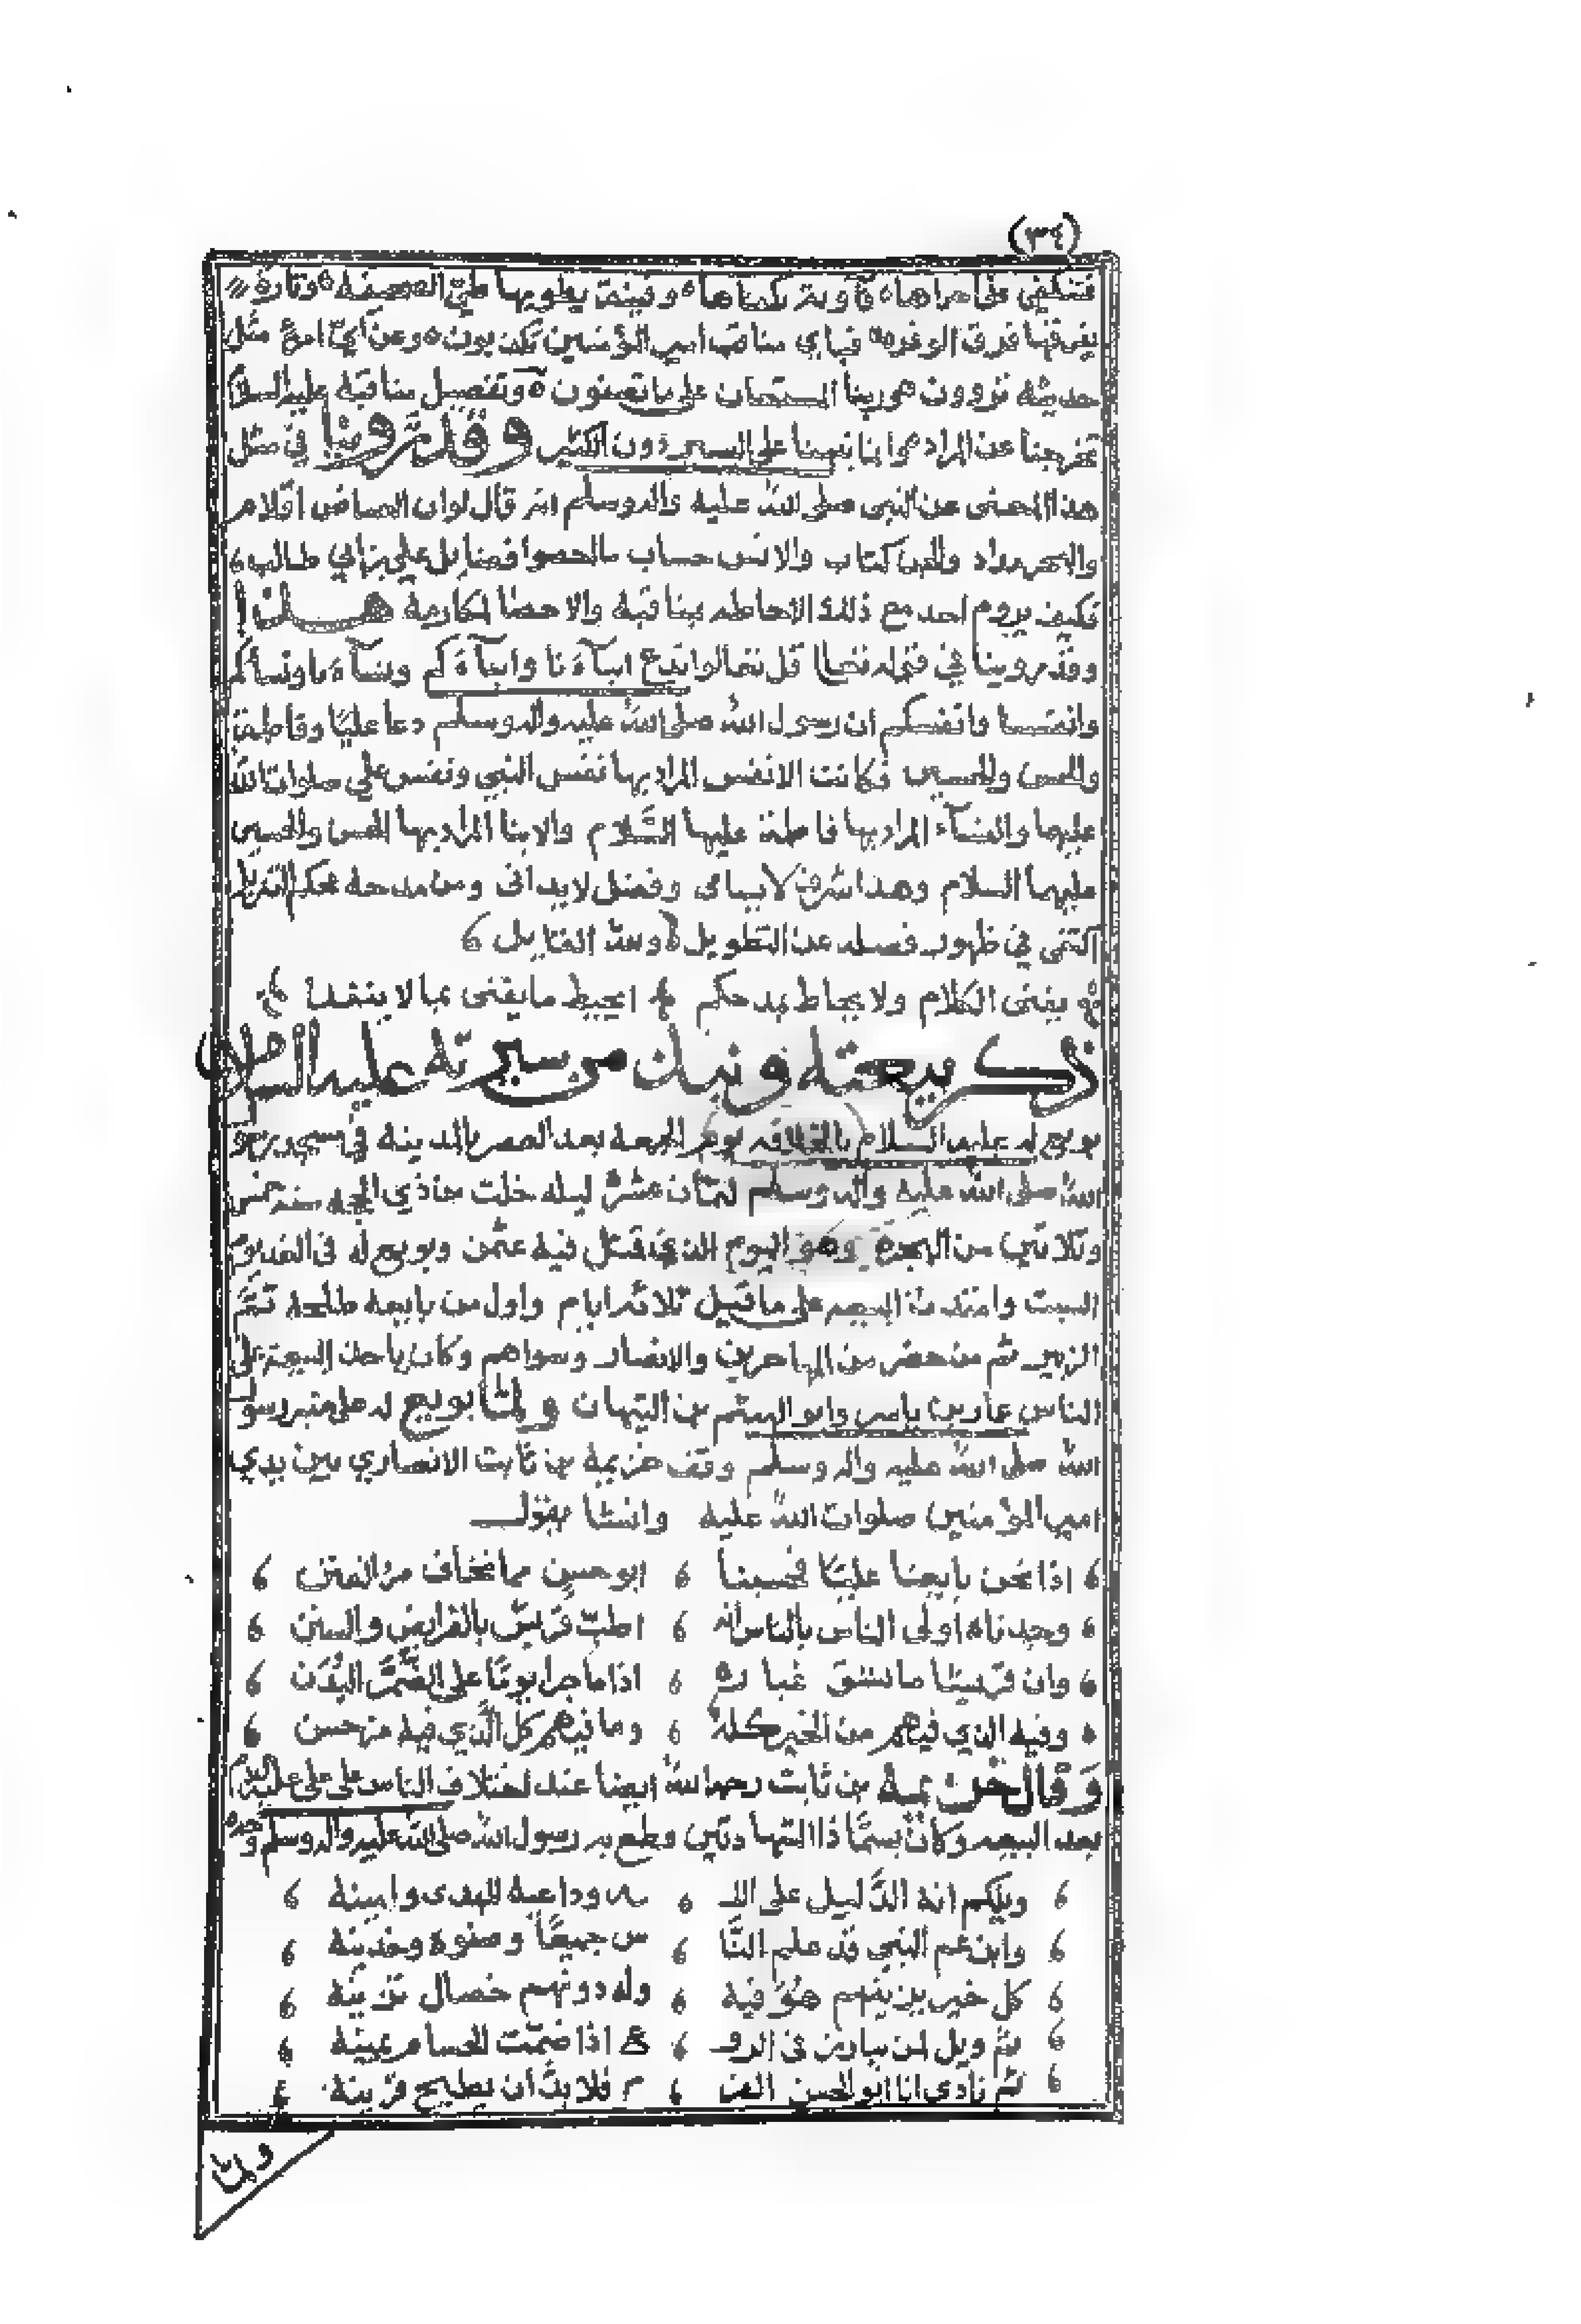 (٣٤)
فتكفي على مراها وآونة وفينة يطويها طيّ الصحيفة وتارة
يفرقها فرق الوفره فباي مناقب امير المؤمنين تكذبون وعن ايّ امرء مثل
حديثه تروون وربنا المستعان على ما تصفون وتفصيل مناقبه عليه السلام
تخرجنا عن المراد وانا نبهنا على اليسير دون الكثير وقد روينا في مثل
هذا المعنى عن النبي صلى الله عليه واله وسلم انه قال لو ان الغياض اقلام
والبحر مداد والجن كتاب والانس حساب مااحصوا فضايل علي بن ابي طالب
فكيف يروم احد مع ذلك الاحاطه بمناقبه والاحصا لمكارمه هذا
وقد روينا في قوله تعالى قل تعالوا ندع ابنآءنا وابنآءكم ونسآءنا ونسآءكم
وانفسنا وانفسكم ان رسول الله صلى الله عليه واله وسلم دعا عليًا وفاطمة
والحسن والحسين فكانت الانفس المراد بها نفس النبي ونفس علي صلوات الله
عليهما والنسآء المراد بها فاطمة عليها السلام والابنا المراد بهما الحسن والحسين
عليهما السلام وهذا شرف لا يساى وفضل لا يدانى ومن مدحه محكم التنزيل
اكتفى في ظهور فضله عن التطويل ولله القايل
يفنى الكلام ولا يحاط بمدحكم ايحيط ما يفنى بما لا ينفد
ذكر بيعته ونبذ من سيرته عليه السلام
بويع له عليه السلام بالخلافه يوم الجمعة بعد العصر بالمدينة في مسجد رسول
الله صلى الله عليه واله وسلم لثمان عشرة ليله خلت من ذي الحجه سنة خمس
وثلاثين من الهجرة وهو اليوم الذي قتل فيه عثمن وبويع له في الغد يوم
السبت وامتدت البيعه على ما قيل ثلاثة ايام واول من بايعه طلحه ثم
الزبير ثم من حضر من المهاجرين والانصار وسواهم وكان ياخذ البيعة على
الناس عمار بن ياسر وابو الهيثم بن التيهان ولمّا بويع له على منبر رسول
الله صلى الله عليه واله وسلم وقف خزيمة بن ثابت الانصاري بين يدي
امير المؤمنين صلوات الله عليه وانشا يقول
اذا نحن بايعنا عليًا فحسبنا ابو حسن مما نخاف من الفتن
وجدناه اولى الناس بالناس انه اطبّ قريش بالفرايض والسنن
وان قريشا ما تشق غباره اذا ما جرا يومًا على الضمّر البُدَن
وفيه الذي فيهم من الخير كله وما فيهم كل الّذي فيه من حسن
وقال خزيمة بن ثابت رحمه الله ايضا عند اختلاف الناس على علي عليه السلام
بعد البيعه وكان يسمّا ذا الشهادتين وطع به رسول الله صلى الله عليه واله وسلم
ويلكم انه الدَّليل على اللـ ـه وداعيه للهدى وامينه
وابن عم النبي قد علم النّا س جميعًا وصنوه وخدينه
كل خير يزينهم هو فيه وله دونهم خصال تزينه
ثم ويل لمن يبارز في الرو ع اذا ضمّت الحسام يمينه
ثم نادى انا ابو الحسن القر م فلا بدّ ان يطيح قرينه
ولمّا